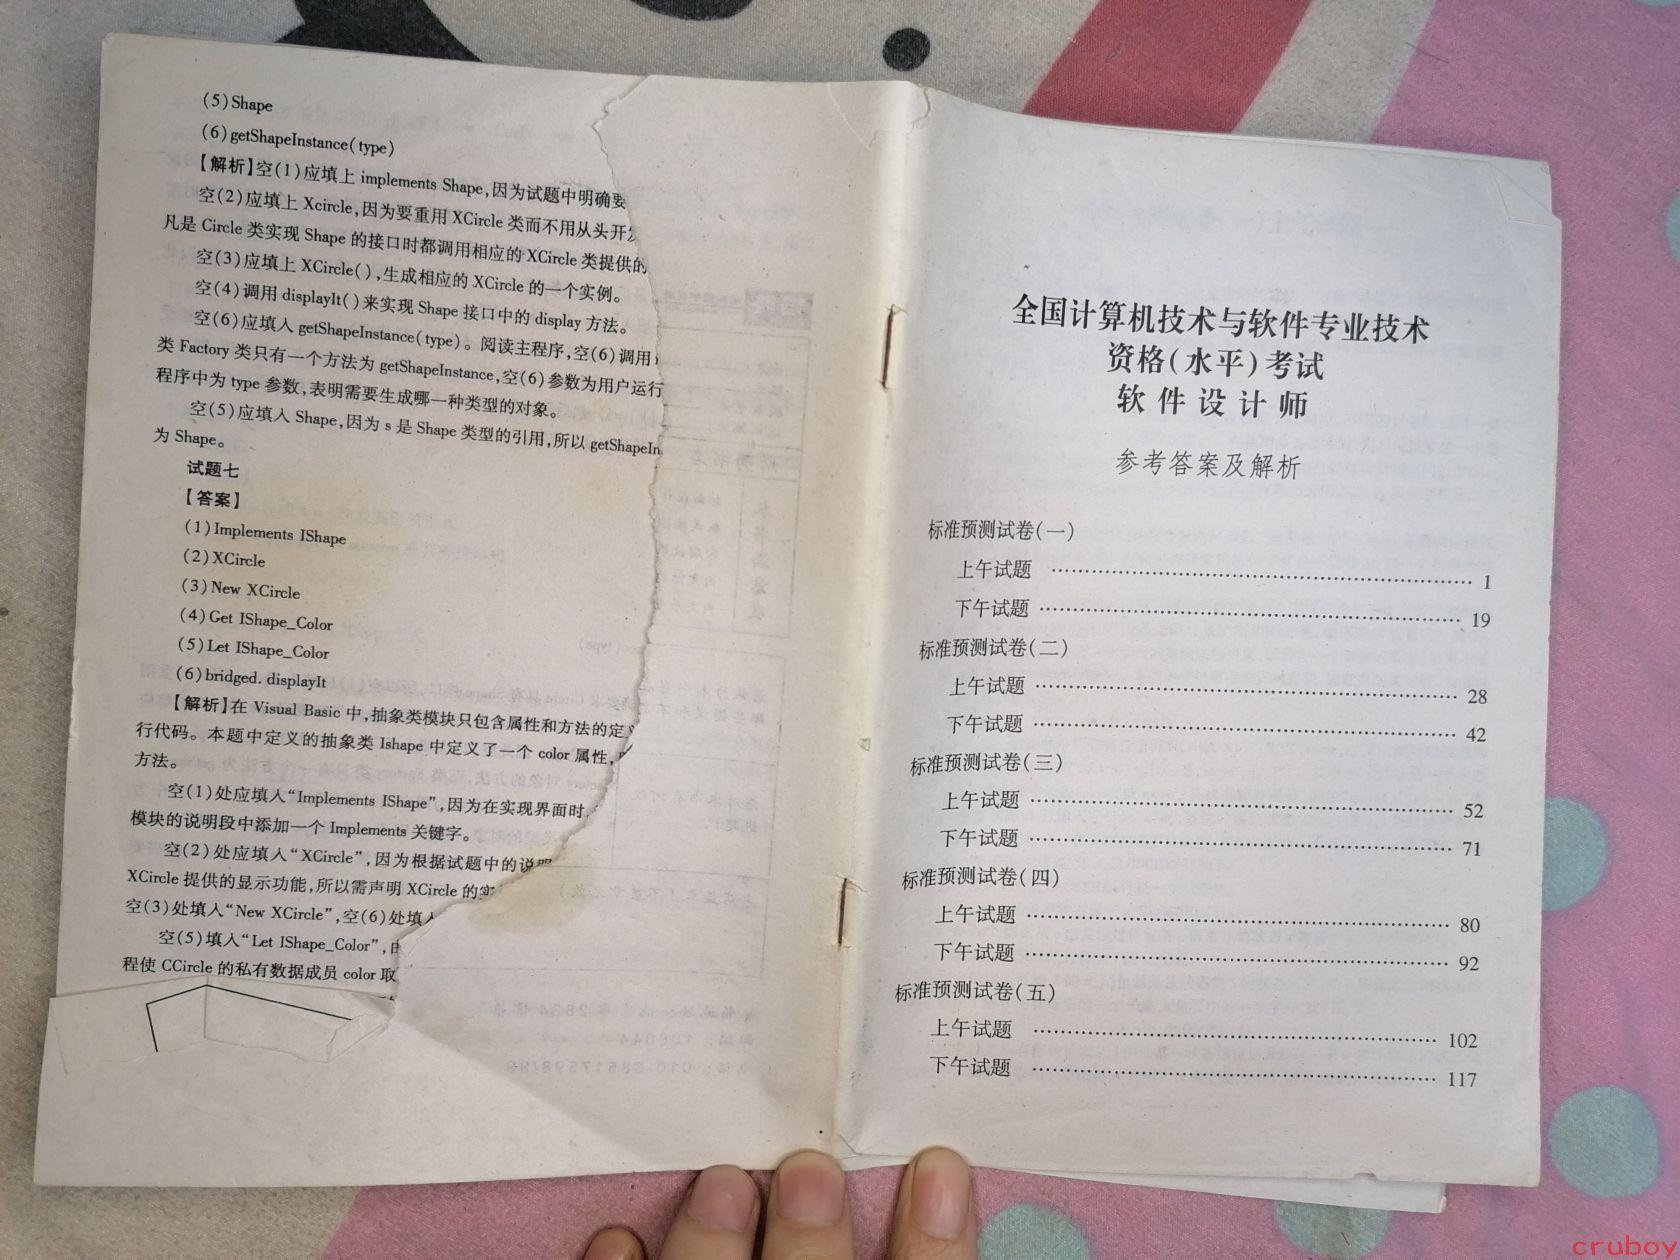 (5)Shape
(6)getShapeInstance(type)
【解析】空(1)应填上 implements Shape,因为试题中明确要
空(2)应填上 Xcircle,因为要重用 XCircle 类而不用从头开发
凡是 Circle 类实现 Shape 的接口时都调用相应的 XCircle 类提供的
空(3)应填上 XCircle(),生成相应的 XCircle 的一个实例。
空(4)调用 displayIt()来实现 Shape 接口中的 display 方法。
空(6)应填入 getShapeInstance(type)。阅读主程序,空(6)调用
类 Factory 类只有一个方法为 getShapeInstance,空(6)参数为用户运行
程序中为 type 参数,表明需要生成哪一种类型的对象。
空(5)应填入 Shape,因为 s 是 Shape 类型的引用,所以 getShapeIn
为 Shape。
试题七
【答案】
(1)Implements IShape
(2)XCircle
(3)New XCircle
(4)Get IShape_Color
(5)Let IShape_Color
(6)bridged. displayIt
【解析】在 Visual Basic 中,抽象类模块只包含属性和方法的定义
行代码。本题中定义的抽象类 Ishape 中定义了一个 color 属性,
方法。
空(1)处应填入“Implements IShape”,因为在实现界面时,
模块的说明段中添加一个 Implements 关键字。
空(2)处应填入“XCircle”,因为根据试题中的说明
XCircle 提供的显示功能,所以需声明 XCircle 的实
空(3)处填入“New XCircle”,空(6)处填入
空(5)填入“Let IShape_Color”,
程使 CCircle 的私有数据成员 color 取
全国计算机技术与软件专业技术
资格(水平)考试
软件设计师
参考答案及解析
标准预测试卷(一)
上午试题 ………………………………………… 1
下午试题 ………………………………………… 19
标准预测试卷(二)
上午试题 ………………………………………… 28
下午试题 ………………………………………… 42
标准预测试卷(三)
上午试题 ………………………………………… 52
下午试题 ………………………………………… 71
标准预测试卷(四)
上午试题 ………………………………………… 80
下午试题 ………………………………………… 92
标准预测试卷(五)
上午试题 ………………………………………… 102
下午试题 ………………………………………… 117
cruboy